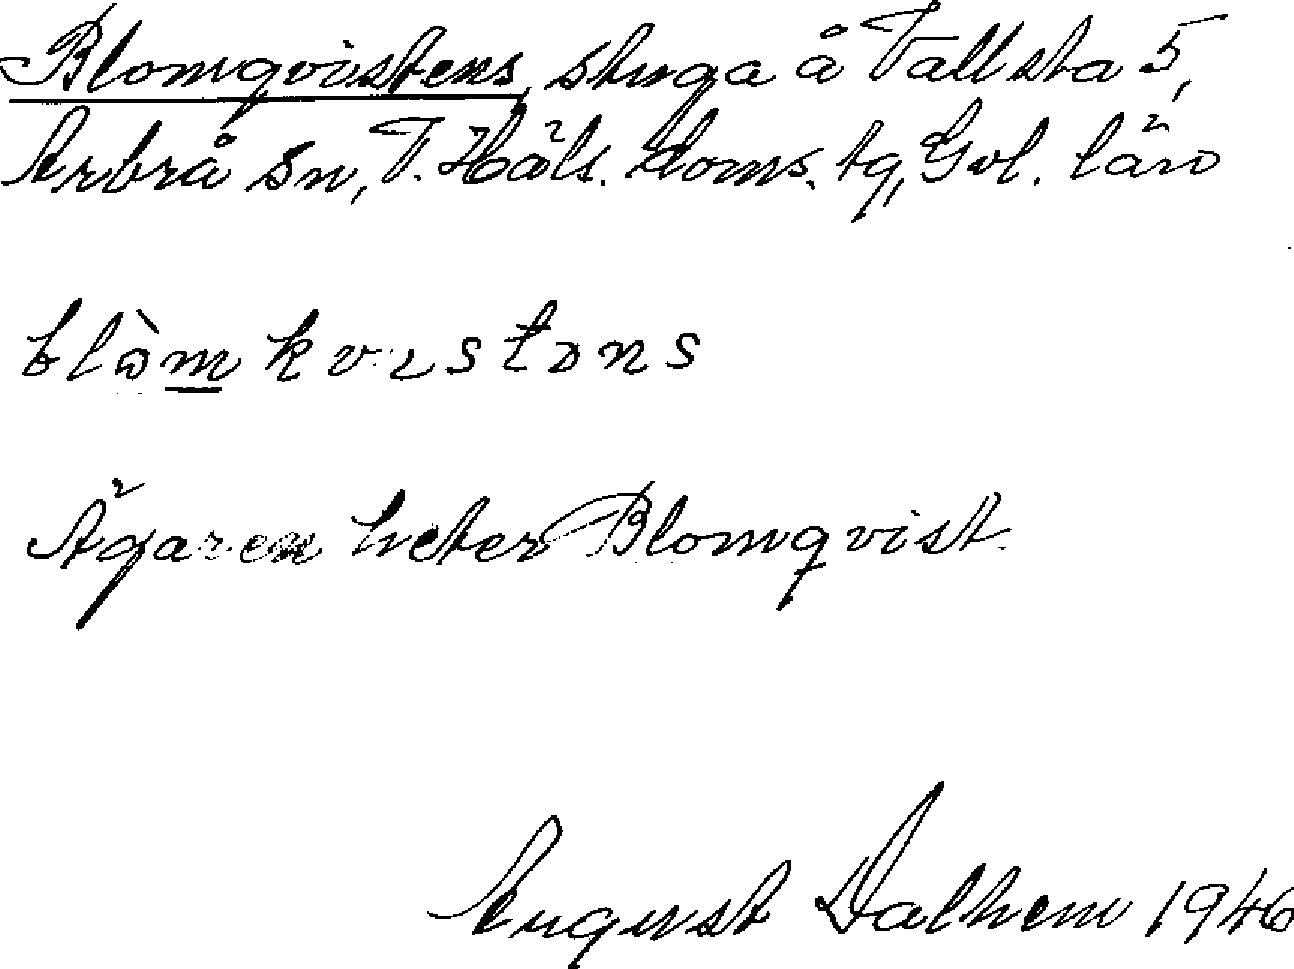 Blomqvistens, stuga å Vallsta 5,
Arbrå sn, V. Häls. doms. tg, Gvl. län
blòmkvɩstəns
Ägaren heter Blomqvist.
August Dalhem 1946